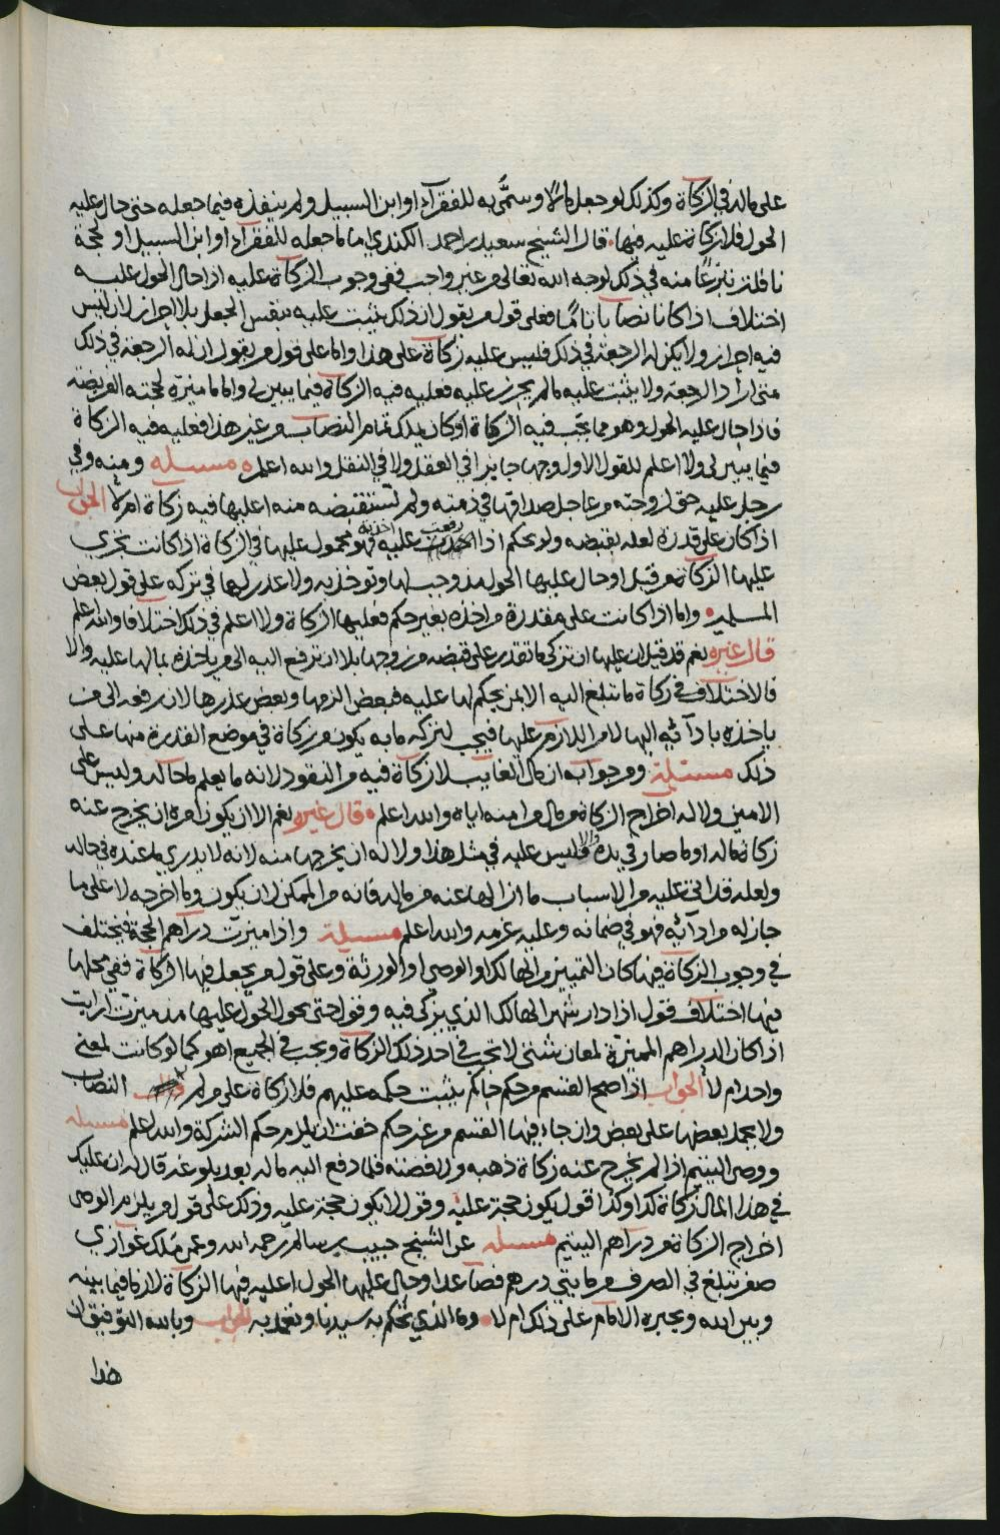 على ماله في الزكاة وكذلك لو جعل مالا وسمى به للفقرآء او ابن السبيل ولم ينفذه فيما جعله حتى حال عليه
الحول فلا زكاة عليه فيها قال الشيخ سعيد بن احمد الكندي اما ما جعله للفقرآء او ابن السبيل او لحجة
نافلة تبرعا منه في ذلك لوجه الله تعالى من غير واجب ففي وجوب الزكاة عليه اذا حال الحول عليه
اختلاف اذا كان نصابا تاما فعلى قول من يقول ان ذلك يثبت عليه بنفس الجعل بلا احراز لان ليس
فيه احراز ولا يكن له الرجعة في ذلك فليس عليه زكاة على هذا واما على قول من يقول ان له الرجعة في ذلك
متى اراد الرجعة ولا يثبت عليه ما لم يحرز عليه فعليه فيه الزكاة فيما يبين لي واما ما ميزه لحجته الفريضة
فاذا حال عليه الحول وهو مما تجب فيه الزكاة او كان يملك تمام النصاب من غير هذا فعليه فيه الزكاة
فيما يبين لي ولا اعلم للقول الاول وجها جايزا في العقل ولا في النقل والله اعلم مسئلة ومنه وفي
رجل عليه حق لزوجته من عاجل صداقها في ذمته ولم تستقبضه منه اعليها فيه زكاة ام لا الجواب
اذا كان على قدرة لعله بقبضه ولو بحكم اذا رفعت عليه اخذ به فهو محمول عليها في الزكاة اذا كانت تجري
عليها الزكاة من قبل او حال عليها الحول منذ وجب لها وتوخذ به ولا عذر لها في تركه على قول بعض
المسلمين واما اذا كانت على مقدرة من اخذه بغير حكم فعليها الزكاة ولا اعلم في ذلك اختلافا والله اعلم
قال غيره نعم قد قيل ان عليها ان تزكي ما تقدر على قبضه من زوجها بلا ان ترفع اليه الى من ياخذه بما لها عليه والا
فالاختلاف في زكاة ما تبلغ اليه الا بمن يحكم لها عليه فبعض الزمها وبعض عذرها لان رفعه الى من
ياخذه بادآئه اليها لا من اللازم عليها فيجب لتركه ما به يكون من زكاة في موضع القدرة منها على
ذلك مسئلة ومن جوابه ان مال الغايب لا زكاة فيه من النقود لانه ما يعلم ما حاله وليس على
الامين ولا له اخراج الزكاة من مال من امنه اياه والله اعلم قال غيره نعم الا ان يكون امره ان يخرج عنه
زكاة ماله او ما صار في يده والا فليس عليه في مثل هذا ولا له ان يخرجها منه لانه لا يدري ما عنده في حاله
ولعله قد اتى عليه من الاسباب ما ازالها عنه من ماله فانه من الممكن لان يكون وما اخرجه لا على ما
جاز له من ادآئه فهو في ضمانه وعليه غرمه والله اعلم مسئلة واذا ميزت دراهم الحجة فيختلف
في وجوب الزكاة فيها كان التمييز من الهالك او الوصي او الورثة وعلى قول من يجعل فيها الزكاة ففي محلها
فيها اختلاف قول اذا دار شهر الهالك الذي يزكي فيه وقول حتى يحول الحول عليها مذ ميزت ارايت
اذا كان الدراهم المميزة لمعان شتى لا تجب في احد ذلك الزكاة وتجب في الجميع اهو كما لو كانت لمعنى
واحد ام لا الجواب اذا صح القسم من حكم حاكم يثبت حكمه عليهم فلا زكاة على من لم النصاب
ولا يحمل بعضها على بعض وان جاء فيها القسم من غير حكم خفت ان يلزم حكم الشركة والله اعلم مسئله
ووصي اليتيم اذا لم يخرج عنه زكاة ذهبه ولا فضته فلما دفع اليه ماله بعد بلوغه قال له ان عليك
في هذا المال زكاة كذا وكذا قول يكون حجة عليه وقول لا يكون حجة عليه وذلك على قول من يلزم الوصي
اخراج الزكاة من دراهم اليتيم مسئله عن الشيخ حبيب بن سالم رحمه الله وعمن ملك غوازي
صفر تبلغ في الصرف من مايتي درهم فصاعدا وحال عليها الحول اعليه فيها الزكاة لازما فيما بينه
وبين الله ويجبره الامام على ذلك ام لا وما الذي تحكم به سيدنا وتعمل به الجواب وبالله التوفيق ان
هذا